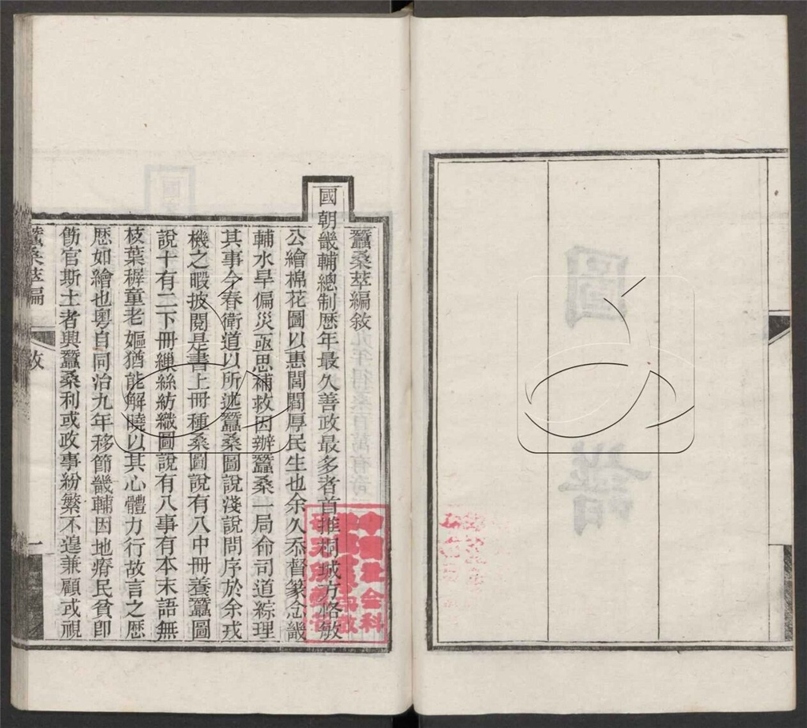 蠶桑萃編敘
國朝畿輔總制歷年最久善政最多者首推桐城方恪敏
公繪棉花圖以惠閭閻厚民生也余久忝督篆念畿
輔水旱偏災亟思補救因辦蠶桑一局命司道綜理
其事今春衛道以所述蠶桑圖說淺說問序於余戎
機之暇披閱是書上冊種桑圖說有八中冊養蠶圖
說十有二下冊繅絲紡織圖說有八事有本末語無
枝葉穉童老嫗猶能解曉以其心體力行故言之歷
歷如繪也粵自同治九年移節畿輔因地瘠民貧卽
飭官斯土者興蠶桑利或政事紛繁不遑兼顧或視
蠶桑萃編
敘